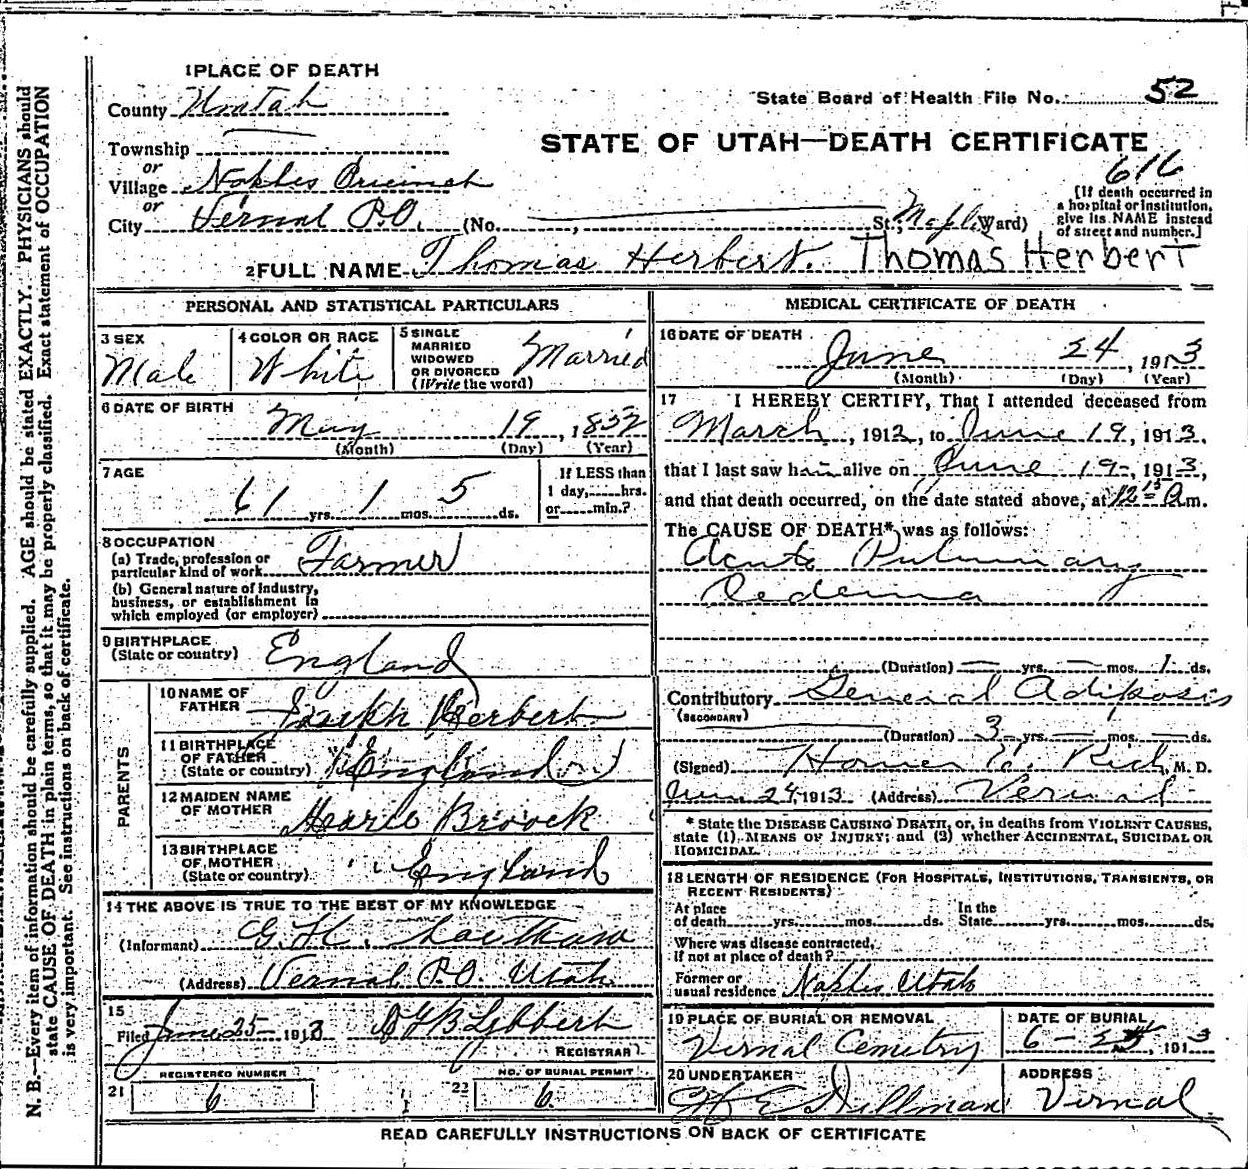 1 PLACE OF DEATH
County Uintah
State Board of Health File No. 52
Township
STATE OF UTAH—DEATH CERTIFICATE
or
616
Village Naples Precinct
or
City Vernal P.O. (No. , St.; Ward)
[If death occurred in
a hospital or institution,
give its NAME instead
of street and number.]
2 FULL NAME Thomas Herbert. Thomas Herbert
PERSONAL AND STATISTICAL PARTICULARS
3 SEX Male
4 COLOR OR RACE White
5 SINGLE
MARRIED
WIDOWED
OR DIVORCED
(Write the word) Married
6 DATE OF BIRTH
May 19, 1852
(Month) (Day) (Year)
7 AGE
61 yrs. 1 mos. 5 ds.
If LESS than
1 day, hrs.
or min.?
8 OCCUPATION
(a) Trade, profession or
particular kind of work Farmer
(b) General nature of industry,
business, or establishment in
which employed (or employer)
9 BIRTHPLACE
(State or country) England
PARENTS
10 NAME OF
FATHER Joseph Herbert
11 BIRTHPLACE
OF FATHER
(State or country) England
12 MAIDEN NAME
OF MOTHER Brook
13 BIRTHPLACE
OF MOTHER
(State or country) England
14 THE ABOVE IS TRUE TO THE BEST OF MY KNOWLEDGE
(Informant) G. H.
(Address) Vernal P.O. Utah.
15
Filed June 25 1913
REGISTRAR
REGISTERED NUMBER
21 6
NO. OF BURIAL PERMIT
22 6
MEDICAL CERTIFICATE OF DEATH
16 DATE OF DEATH
June 24, 1913
(Month) (Day) (Year)
17 I HEREBY CERTIFY, That I attended deceased from
March, 1912, to June 19, 1913,
that I last saw him alive on June 19-, 1913,
and that death occurred, on the date stated above, at 12 15 A m.
The CAUSE OF DEATH* was as follows:
Acute Pulmonary
Oedema
(Duration) — yrs. — mos. 1 ds.
Contributory General Adiposis
(SECONDARY)
(Duration) 3 yrs. — mos. — ds.
(Signed) Homer E. Rich, M. D.
June 24, 1913 (Address) Vernal
* State the DISEASE CAUSING DEATH, or, in deaths from VIOLENT CAUSES,
state (1) MEANS OF INJURY; and (2) whether ACCIDENTAL, SUICIDAL OR
HOMICIDAL.
18 LENGTH OF RESIDENCE (FOR HOSPITALS, INSTITUTIONS, TRANSIENTS, OR
RECENT RESIDENTS)
At place
of death yrs. mos. ds.
In the
State yrs. mos. ds.
Where was disease contracted,
if not at place of death?
Former or
usual residence Naples Utah
19 PLACE OF BURIAL OR REMOVAL
Vernal Cemetry
DATE OF BURIAL
6 – , 1913
20 UNDERTAKER
Dillman
ADDRESS
Vernal.
READ CAREFULLY INSTRUCTIONS ON BACK OF CERTIFICATE
N. B.—Every item of information should be carefully supplied. AGE should be stated EXACTLY. PHYSICIANS should
state CAUSE OF DEATH in plain terms, so that it may be properly classified. Exact statement of OCCUPATION
is very important. See instructions on back of certificate.